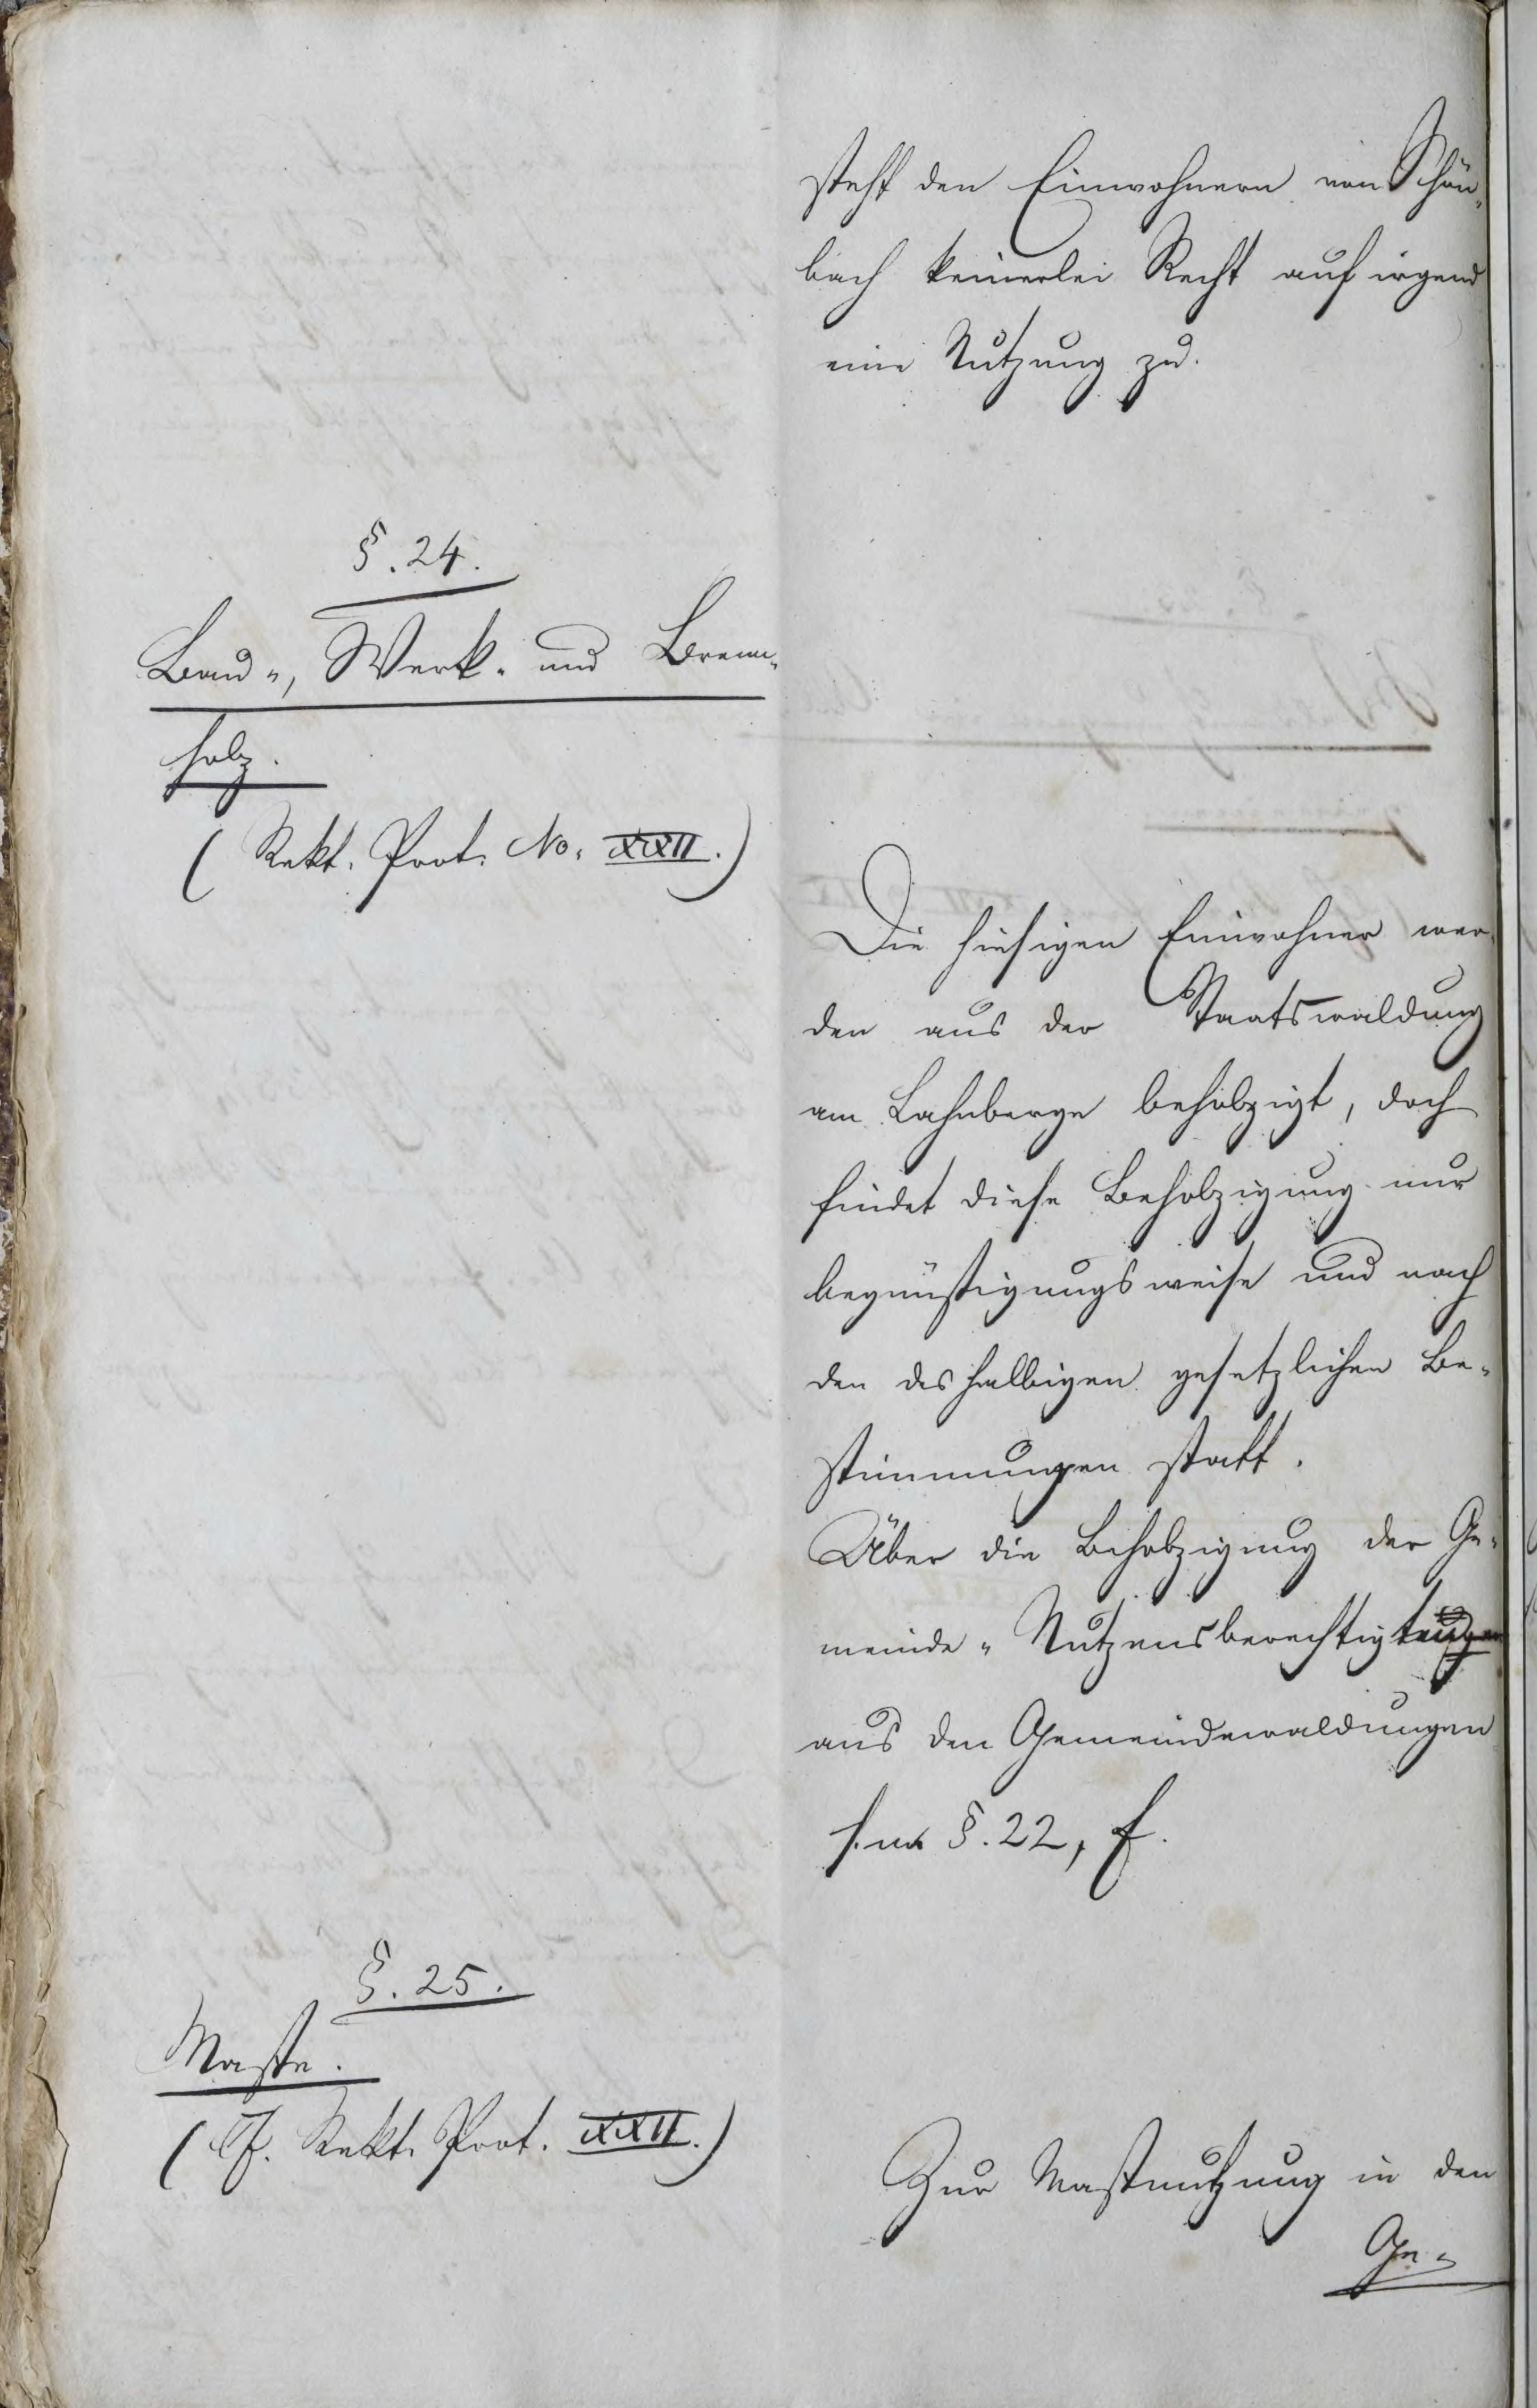 steht den Einwohnern von Schön-
bach keinerlei Recht auf irgend
eine Nutzung zu.
§. 24.
Bau-, Werk- und Brenn-
holz.
(Rekt. Prot. No. XXII.)
Die hiesigen Einwohner wer-
den aus der Staatswaldung
am Lahnberge beholzigt, doch
findet diese Beholzigung nur
begünstigungsweise und nach
den deshalbigen gesetzlichen Be-
stimmungen statt.
Über die Beholzigung der Ge-
meinde-Nutzensberechtigten
aus den Gemeindewaldungen
§. 22, f.
§. 25.
Maste.
(Cf. Rekt. Prot. XXII.)
Zur Mastnutzung in den
Ge-